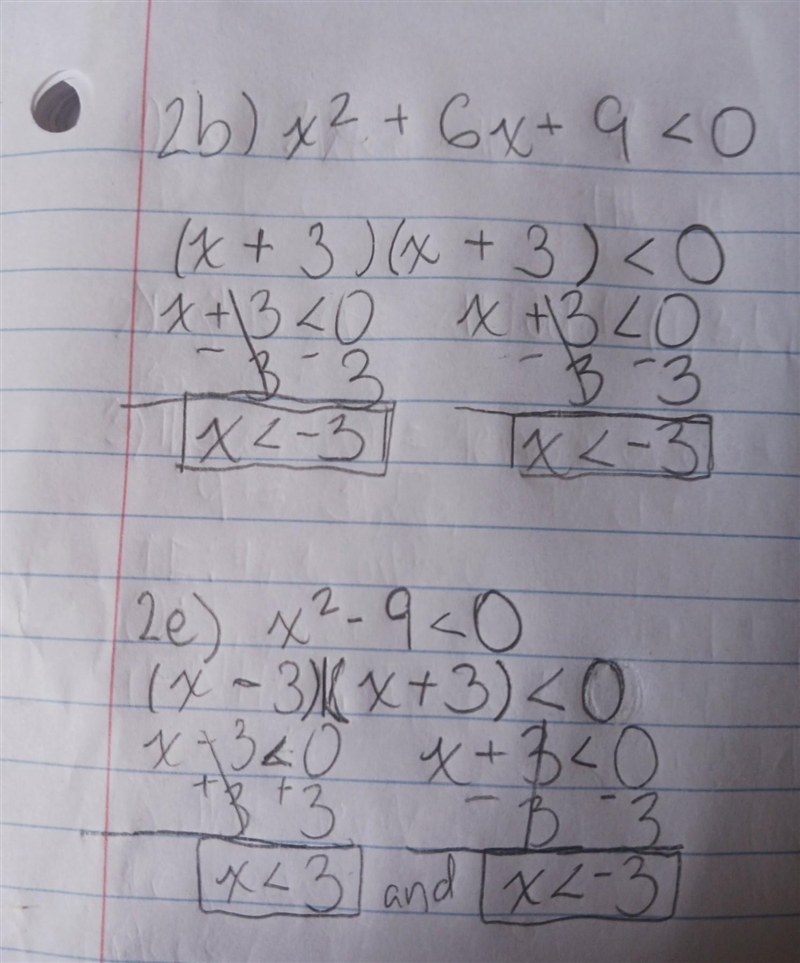 2b) x² + 6x + 9 < 0
(x + 3)(x + 3) < 0
x + 3 < 0 x + 3 < 0
- 3 - 3 - 3 - 3
x < -3 x < -3
2e) x² - 9 < 0
(x - 3)(x + 3) < 0
x - 3 < 0 x + 3 < 0
+ 3 + 3 - 3 - 3
x < 3 and x < -3